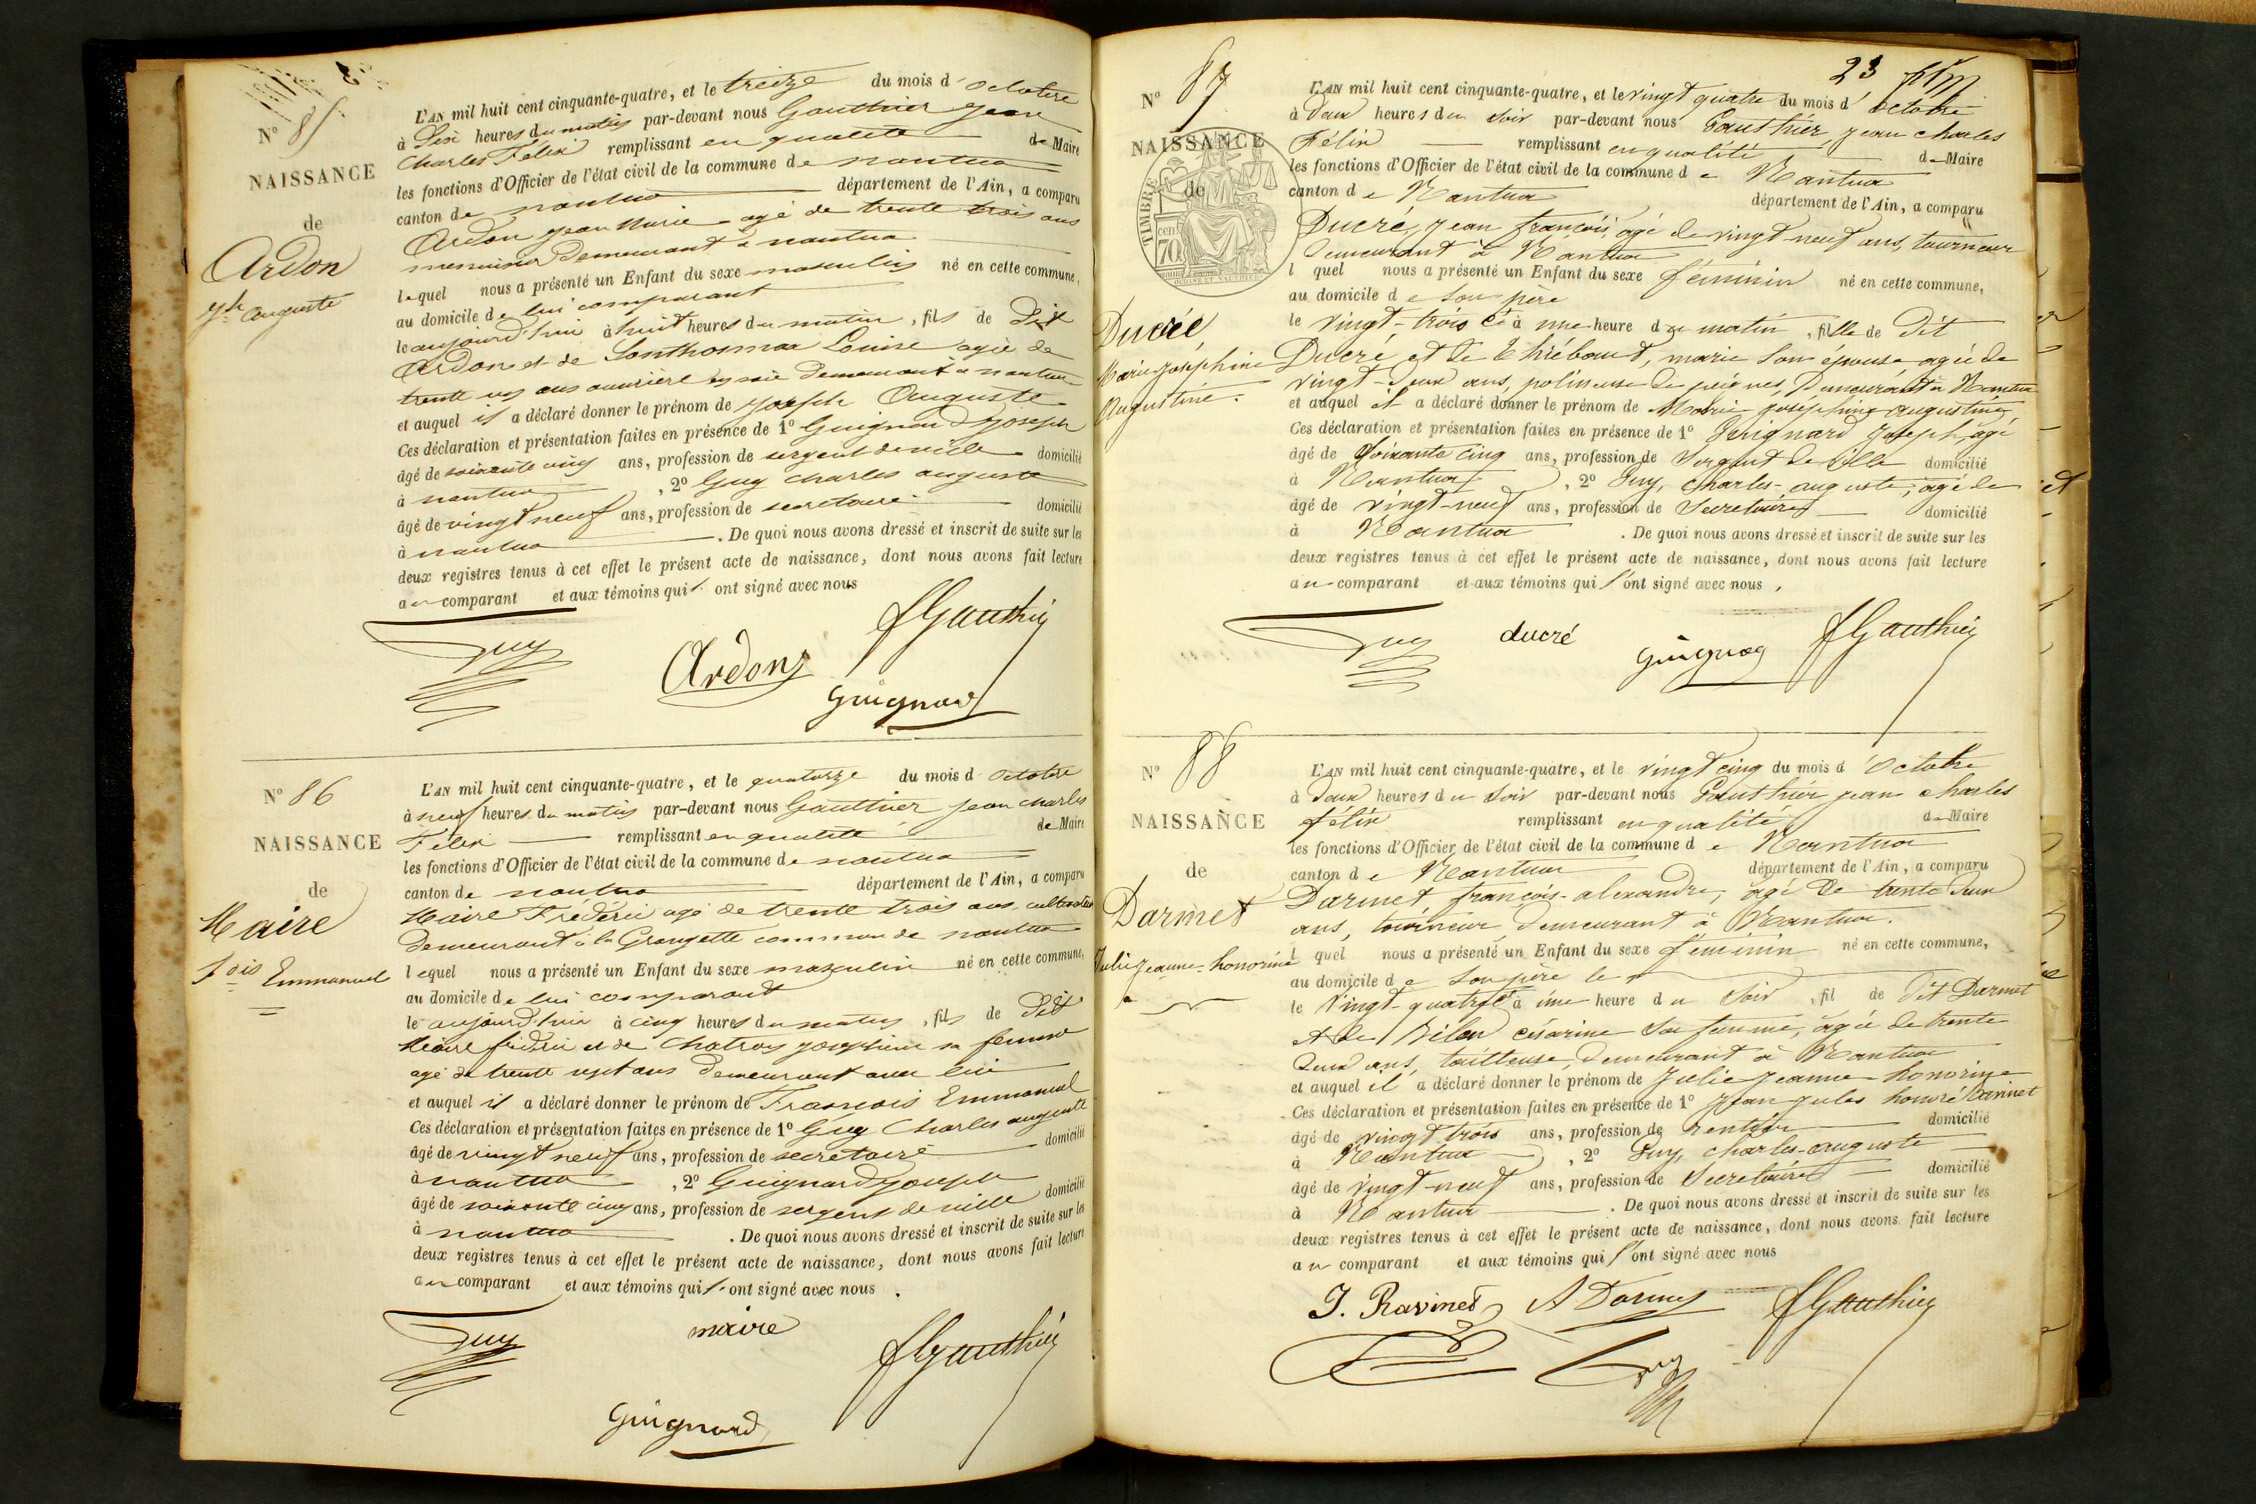 N° 85
NAISSANCE
de
Ardon
jph auguste
L'AN mil huit cent cinquante-quatre, et le treize du mois d'octobre
à dix heures du matin par-devant nous Gauthier Jean
Charles Félix remplissant en qualité de Maire
les fonctions d'Officier de l'état civil de la commune de nantua
canton de nantua département de l'Ain, a comparu
Ardon jean Marie agé de trente trois ans
menuisier Demeurant à nantua
lequel nous a présenté un Enfant du sexe masculin né en cette commune,
au domicile de lui comparant
le aujourd'hui à huit heures du matin, fils de Dit
Ardon et de Louise agée de
trente ans ouvrière en soie Demeurant à nantua
et auquel il a déclaré donner le prénom de joseph Auguste
Ces déclaration et présentation faites en présence de 1° Guignard joseph
âgé de soixante cinq ans, profession de sergent de ville domicilié
à nantua, 2° Guy charles auguste
âgé de vingt neuf ans, profession de secretaire domicilié
à nantua. De quoi nous avons dressé et inscrit de suite sur les
deux registres tenus à cet effet le présent acte de naissance, dont nous avons fait lecture
au comparant et aux témoins qui l'ont signé avec nous
Guy
Ardon
fGauthier
Guignard
N° 86
NAISSANCE
de
Maire
fois Emmanuel
L'AN mil huit cent cinquante-quatre, et le quatorze du mois d'octobre
à neuf heures du matin par-devant nous Gauthier jean charles
Félix remplissant en qualité de Maire
les fonctions d'Officier de l'état civil de la commune de nantua
canton de nantua département de l'Ain, a comparu
Maire Frédéric agé de trente trois ans cultivateur
demeurant à la Grangette commune de nantua
lequel nous a présenté un Enfant du sexe masculin né en cette commune,
au domicile de lui comparant
le aujourd'hui à cinq heures du matin, fils de Dit
Maire frédéric et de josephine sa femme
agé de trente sept ans demeurant avec lui
et auquel il a déclaré donner le prénom de Francois Emmanuel
Ces déclaration et présentation faites en présence de 1° Guy Charles auguste
âgé de vingt neuf ans, profession de secretaire domicilié
à nantua, 2° Guignard joseph
âgé de soixante cinq ans, profession de sergent de ville domicilié
à nantua. De quoi nous avons dressé et inscrit de suite sur les
deux registres tenus à cet effet le présent acte de naissance, dont nous avons fait lecture
au comparant et aux témoins qui l'ont signé avec nous.
Guy
maire
fGauthier
Guignard
23
N° 87
NAISSANCE
de
TIMBRE
70
Ducré,
Marie joséphine
Augustine.
L'AN mil huit cent cinquante-quatre, et le vingt quatre du mois d'octobre
à deux heures du soir par-devant nous Gauthier, jean charles
Félix remplissant en qualité de Maire
les fonctions d'Officier de l'état civil de la commune de Nantua
canton de Nantua département de l'Ain, a comparu
Ducré, jean françois, agé de vingt-neuf ans, tourneur
demeurant à Nantua
l quel nous a présenté un Enfant du sexe féminin né en cette commune,
au domicile de son père
le vingt-trois ct à une heure du matin, fille de dit
Ducré et de Thiébaud, marie son épouse agée de
vingt-deux ans, polisseuse de peignes, demeurant à Nantua
et auquel il a déclaré donner le prénom de Marie joséphine augustine
Ces déclaration et présentation faites en présence de 1° Guignard joseph, agé
âgé de soixante cinq ans, profession de sergent de ville domicilié
à Nantua, 2° Guy, charles-auguste, agé de
âgé de vingt-neuf ans, profession de Secretaire domicilié
à Nantua. De quoi nous avons dressé et inscrit de suite sur les
deux registres tenus à cet effet le présent acte de naissance, dont nous avons fait lecture
au comparant et aux témoins qui l'ont signé avec nous.
Guy
ducré
Guignard
fGauthier
N° 88
NAISSANCE
de
Darmet
Julie jeanne-honorine
L'AN mil huit cent cinquante-quatre, et le vingt cinq du mois d'octobre
à deux heures du soir par-devant nous Gauthier jean charles
félix remplissant en qualité de Maire
les fonctions d'Officier de l'état civil de la commune de Nantua
canton de Nantua département de l'Ain, a comparu
Darmet, françois-alexandre, agé de trente deux
ans, tourneur, demeurant à Nantua.
l quel nous a présenté un Enfant du sexe féminin né en cette commune,
au domicile de son père le
le vingt-quatre ct à une heure du soir, fil de dit Darmet
et de césarine sa femme, agée de trente
deux ans, tailleuse, demeurant à Nantua
et auquel il a déclaré donner le prénom de Julie jeanne honorine
Ces déclaration et présentation faites en présence de 1° jean jules honoré Ravinet
âgé de vingt trois ans, profession de rentier domicilié
à Nantua, 2° Guy, charles-auguste
âgé de vingt-neuf ans, profession de Secretaire domicilié
à Nantua. De quoi nous avons dressé et inscrit de suite sur les
deux registres tenus à cet effet le présent acte de naissance, dont nous avons fait lecture
au comparant et aux témoins qui l'ont signé avec nous
J. Ravinet
A Darmet
fGauthier
Guy